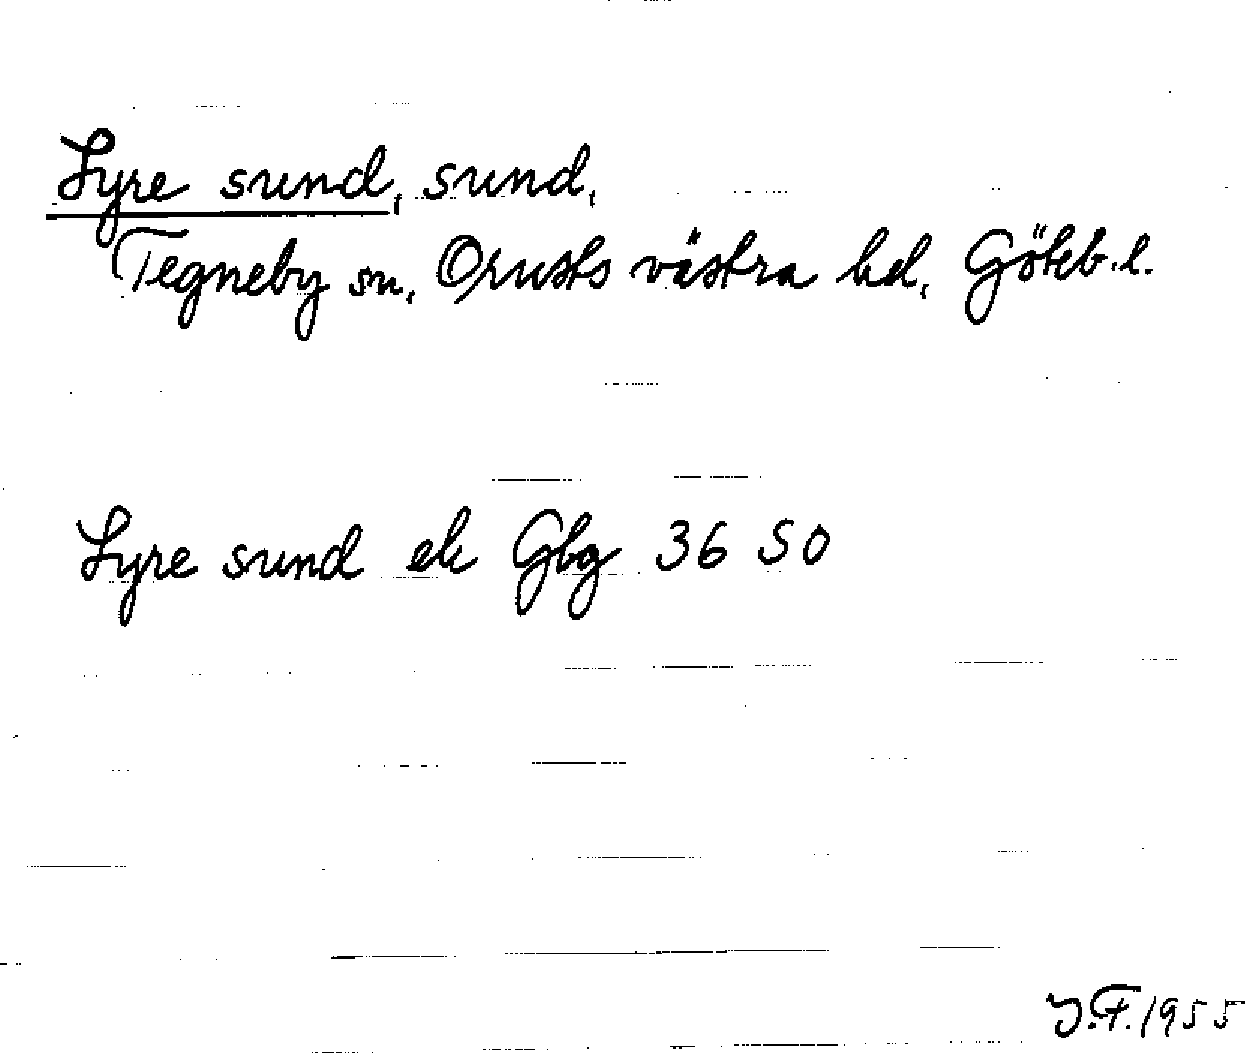 Lyre sund, sund,
Tegneby sn, Orusts västra hd, Göteb.l.
Lyre sund ek Gbg 36 SO
J.F. 1955